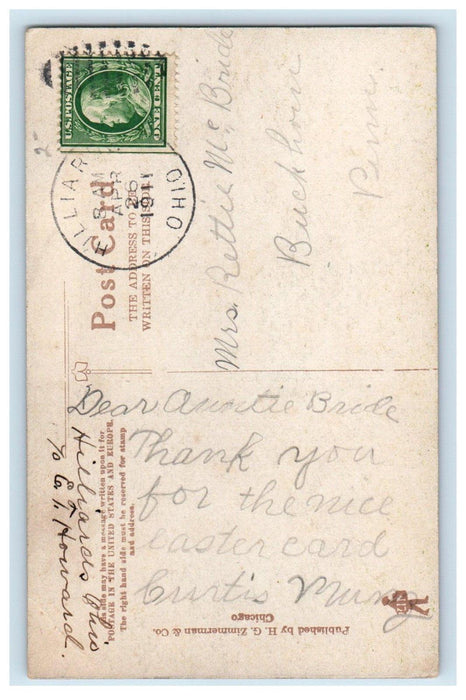 U.S. POSTAGE
ONE CENT
HILLIARDS
8 AM
APR
26
1911
OHIO
Post Card
THE ADDRESS TO BE
WRITTEN ON THIS SIDE.
Mrs. Rettie Mc Bride
Buckhorn
Penn.
Dear Auntie Bride
Thank you
for the nice
easter card
Curtis
Hilliards Ohio
℅ E. T. Howard.
This side may have a message written upon it for
POSTAGE IN THE UNITED STATES AND EUROPE.
The right hand side must be reserved for stamp
and address.
Published by H. G. Zimmerman & Co.
Chicago